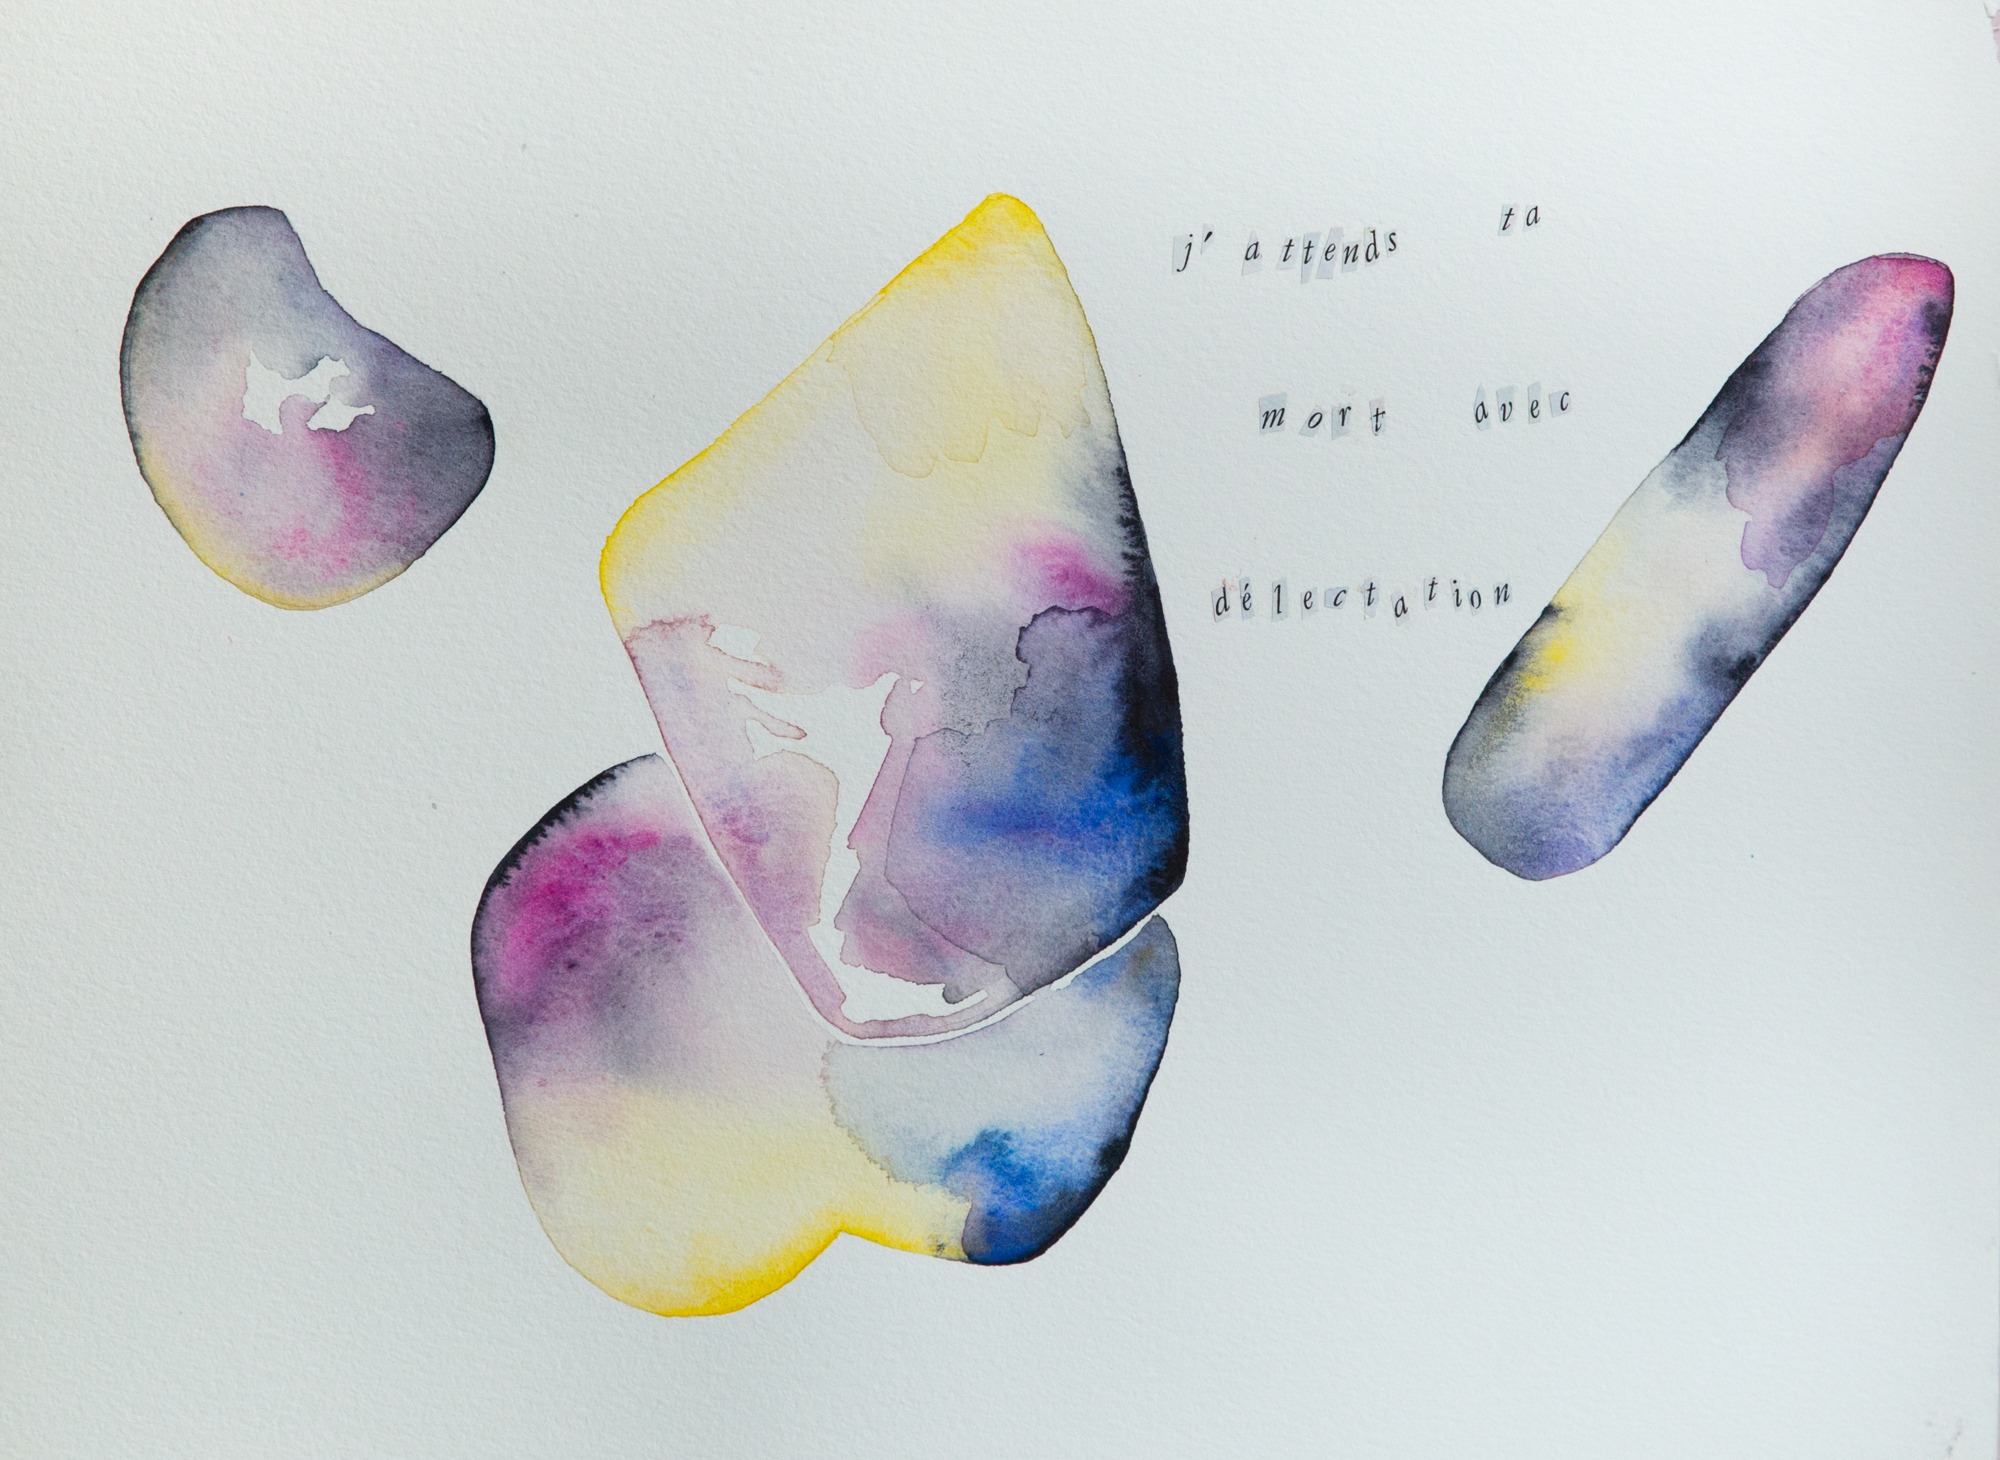 j'attends ta
mort avec
délectation